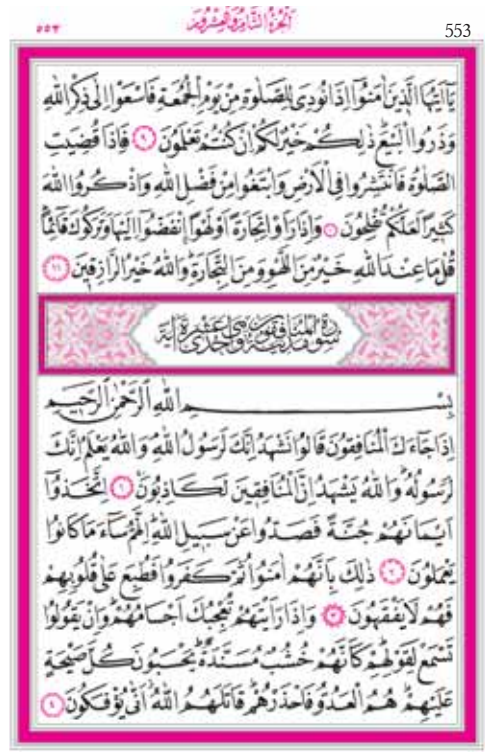 ٥٥٣
اَلْجُزْءُ الثَّامِنُ وَالْعِشْرُونَ
553
يَٓا اَيُّهَا الَّذ۪ينَ اٰمَنُٓوا اِذَا نُودِيَ لِلصَّلٰوةِ مِنْ يَوْمِ الْجُمُعَةِ فَاسْعَوْا اِلٰى ذِكْرِ اللّٰهِ
وَذَرُوا الْبَيْعَۜ ذٰلِكُمْ خَيْرٌ لَكُمْ اِنْ كُنْتُمْ تَعْلَمُونَ ٩ فَاِذَا قُضِيَتِ
الصَّلٰوةُ فَانْتَشِرُوا فِي الْاَرْضِ وَابْتَغُوا مِنْ فَضْلِ اللّٰهِ وَاذْكُرُوا اللّٰهَ
كَث۪يرًا لَعَلَّكُمْ تُفْلِحُونَ ١٠ وَاِذَا رَاَوْا تِجَارَةً اَوْ لَهْوًاۨ انْفَضُّٓوا اِلَيْهَا وَتَرَكُوكَ قَٓائِمًاۜ
قُلْ مَا عِنْدَ اللّٰهِ خَيْرٌ مِنَ اللَّهْوِ وَمِنَ التِّجَارَةِۜ وَاللّٰهُ خَيْرُ الرَّازِق۪ينَ ١١
سُورَةُ الْمُنَافِقُونَ مَدَنِيَّةٌ وَهِيَ اِحْدٰى عَشْرَةَ اٰيَةً
بِسْمِ اللّٰهِ الرَّحْمٰنِ الرَّح۪يمِ
اِذَا جَٓاءَكَ الْمُنَافِقُونَ قَالُوا نَشْهَدُ اِنَّكَ لَرَسُولُ اللّٰهِۢ وَاللّٰهُ يَعْلَمُ اِنَّكَ
لَرَسُولُهُۜ وَاللّٰهُ يَشْهَدُ اِنَّ الْمُنَافِق۪ينَ لَكَاذِبُونَۚ ١ اِتَّخَذُٓوا
اَيْمَانَهُمْ جُنَّةً فَصَدُّوا عَنْ سَب۪يلِ اللّٰهِۜ اِنَّهُمْ سَٓاءَ مَا كَانُوا
يَعْمَلُونَ ٢ ذٰلِكَ بِاَنَّهُمْ اٰمَنُوا ثُمَّ كَفَرُوا فَطُبِعَ عَلٰى قُلُوبِهِمْ
فَهُمْ لَا يَفْقَهُونَ ٣ وَاِذَا رَاَيْتَهُمْ تُعْجِبُكَ اَجْسَامُهُمْۜ وَاِنْ يَقُولُوا
تَسْمَعْ لِقَوْلِهِمْۜ كَاَنَّهُمْ خُشُبٌ مُسَنَّدَةٌۜ يَحْسَبُونَ كُلَّ صَيْحَةٍ
عَلَيْهِمْۜ هُمُ الْعَدُوُّ فَاحْذَرْهُمْۜ قَاتَلَهُمُ اللّٰهُۘ اَنّٰى يُؤْفَكُونَ ٤